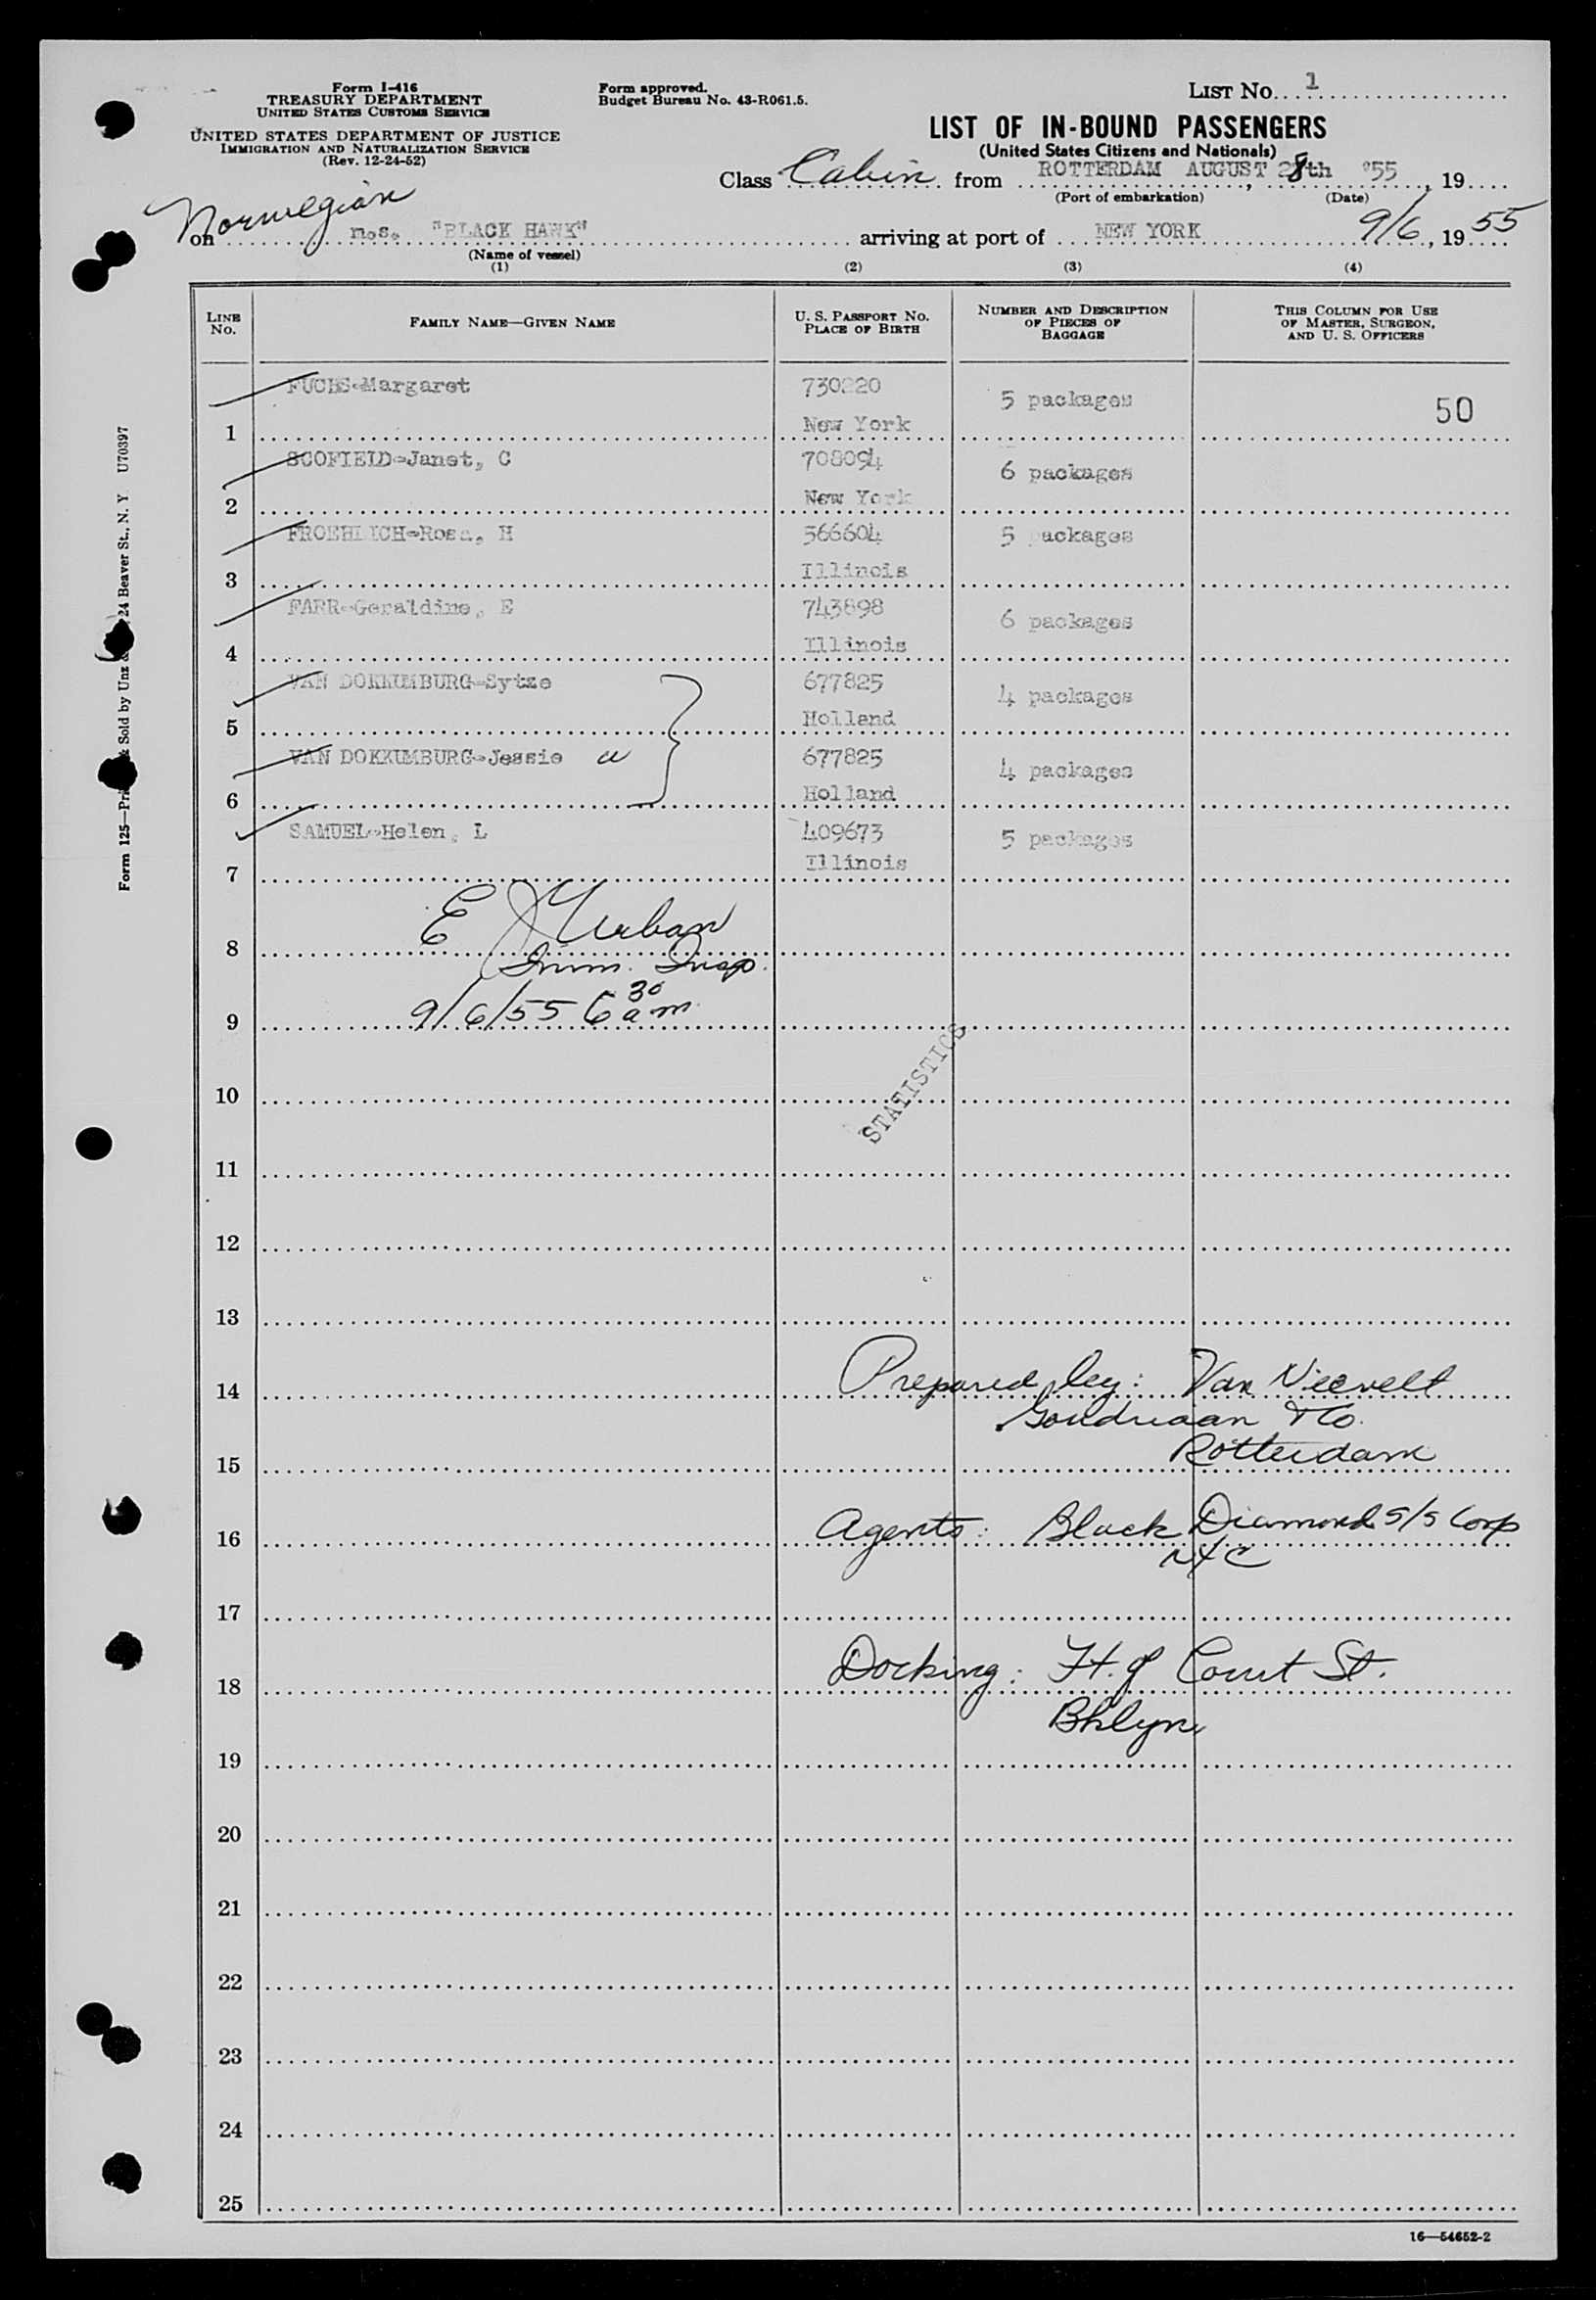 Form I-416
TREASURY DEPARTMENT
UNITED STATES CUSTOMS SERVICE
UNITED STATES DEPARTMENT OF JUSTICE
IMMIGRATION AND NATURALIZATION SERVICE
(Rev. 12-24-52)
Form approved.
Budget Bureau No. 43-R061.5.
LIST NO. 1
LIST OF IN-BOUND PASSENGERS
(United States Citizens and Nationals)
Class Cabin from ROTTERDAM AUGUST 28th '55, 19
(Port of embarkation) (Date)
Norwegian
on m.s. "BLACK HAWK" arriving at port of NEW YORK 9/6, 1955
(Name of vessel)
(1) (2) (3) (4)
LINE NO. FAMILY NAME—GIVEN NAME U. S. PASSPORT NO. PLACE OF BIRTH NUMBER AND DESCRIPTION OF PIECES OF BAGGAGE THIS COLUMN FOR USE OF MASTER, SURGEON, AND U. S. OFFICERS
FUCHS-Margaret 730220 5 packages 50
1 New York
SCOFIELD-Janet, C 708094 6 packages
2 New York
FROEHLICH-Rosa, H 366604 5 packages
3 Illinois
FARR-Geraldine, E 743898 6 packages
4 Illinois
VAN DOKKUMBURG-Sytze 677825 4 packages
5 Holland
VAN DOKKUMBURG-Jessie 677825 4 packages
6 Holland
SAMUEL-Helen, L 409673 5 packages
7 Illinois
E J Urban
8
Imm. Insp.
9/6/55 6 30 am
9
STATISTICS
10
11
12
13
Prepared by: Van Nievelt
14
Goudriaan & Co.
Rotterdam
15
Agents: Black Diamond S/S Corp
16
NYC
17
Docking: Ft. of Court St.
18
Bklyn
19
20
21
22
23
24
25
16—54652-2
Form 125— Sold by Unz 24 Beaver St., N. Y U70397